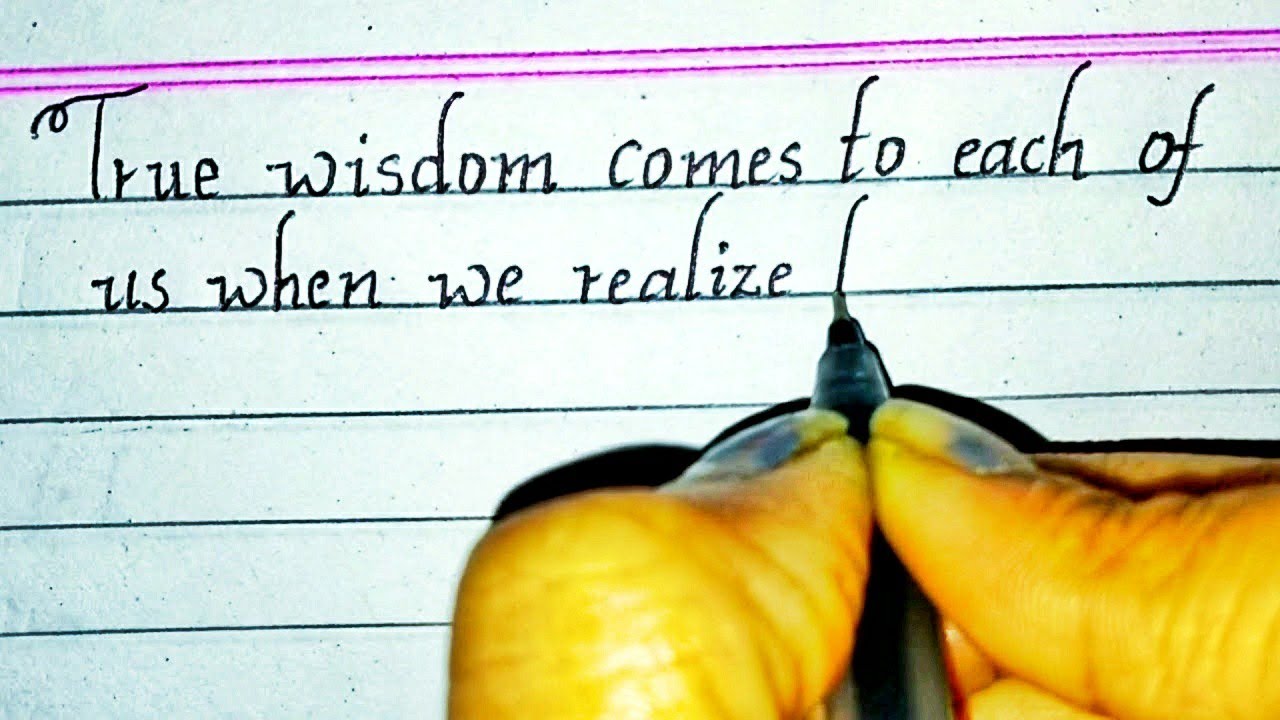 True wisdom comes to each of
us when we realize